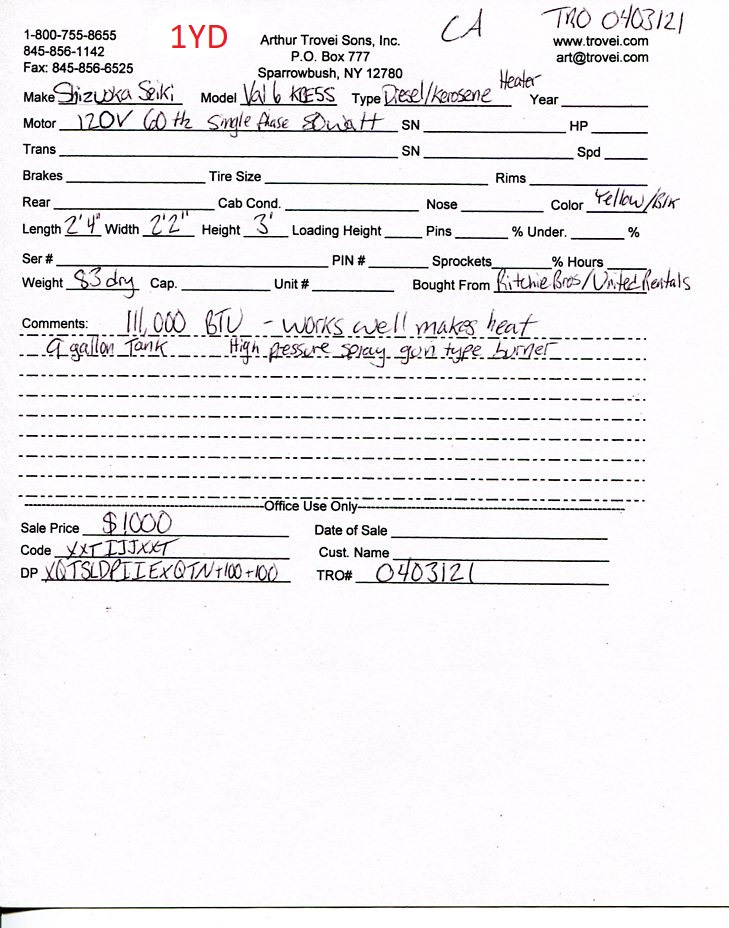 1-800-755-8655
845-856-1142
Fax: 845-856-6525
1YD
Arthur Trovei Sons, Inc.
P.O. Box 777
Sparrowbush, NY 12780
CA
TRO 0403121
www.trovei.com
art@trovei.com
Make Shizuoka Seiki Model Val 6 KBE5S Type Diesel/Kerosene Heater Year
Motor 120V 60 Hz Single Phase 80 watt SN HP
Trans SN Spd
Brakes Tire Size Rims
Rear Cab Cond. Nose Color Yellow/Blk
Length 2'4" Width 2'2" Height 3' Loading Height Pins % Under. %
Ser # PIN # Sprockets % Hours
Weight 83 dry Cap. Unit # Bought From Ritchie Bros/United Rentals
Comments: 111,000 BTU - works well makes heat
9 gallon Tank High pressure spray gun type burner
Office Use Only
Sale Price $1000 Date of Sale
Code XXTIJJXXT Cust. Name
DP XQTSLDPIIEXQTN+100+100 TRO# 0403121